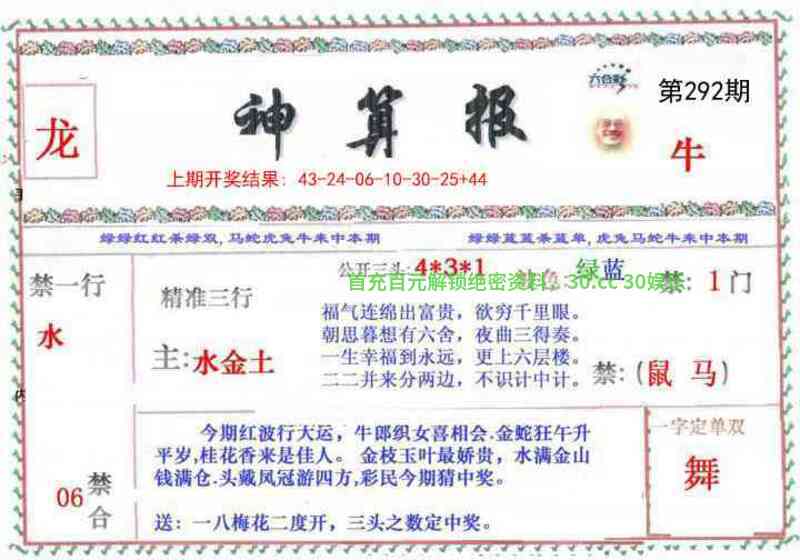 六合彩
第292期
龙
神算报
牛
上期开奖结果: 43-24-06-10-30-25+44
绿绿红红杀绿双, 马蛇虎兔牛来中本期
绿绿蓝蓝杀蓝单, 虎兔马蛇牛来中本期
禁一行
水
精准三行
主:水金土
公开三头: 4*3*1
绿蓝
禁: 1门
首充百元解锁绝密资料
福气连绵出富贵，欲穷千里眼。
朝思暮想有六舍，夜曲三得奏。
一生幸福到永远，更上六层楼。
二二并来分两边，不识计中计。
禁: (鼠 马)
今期红波行大运，牛郎织女喜相会.金蛇狂午升
平岁,桂花香来是佳人。 金枝玉叶最娇贵，水满金山
钱满仓.头戴凤冠游四方,彩民今期猜中奖。
送：一八梅花二度开，三头之数定中奖。
06
禁合
一字定单双
舞